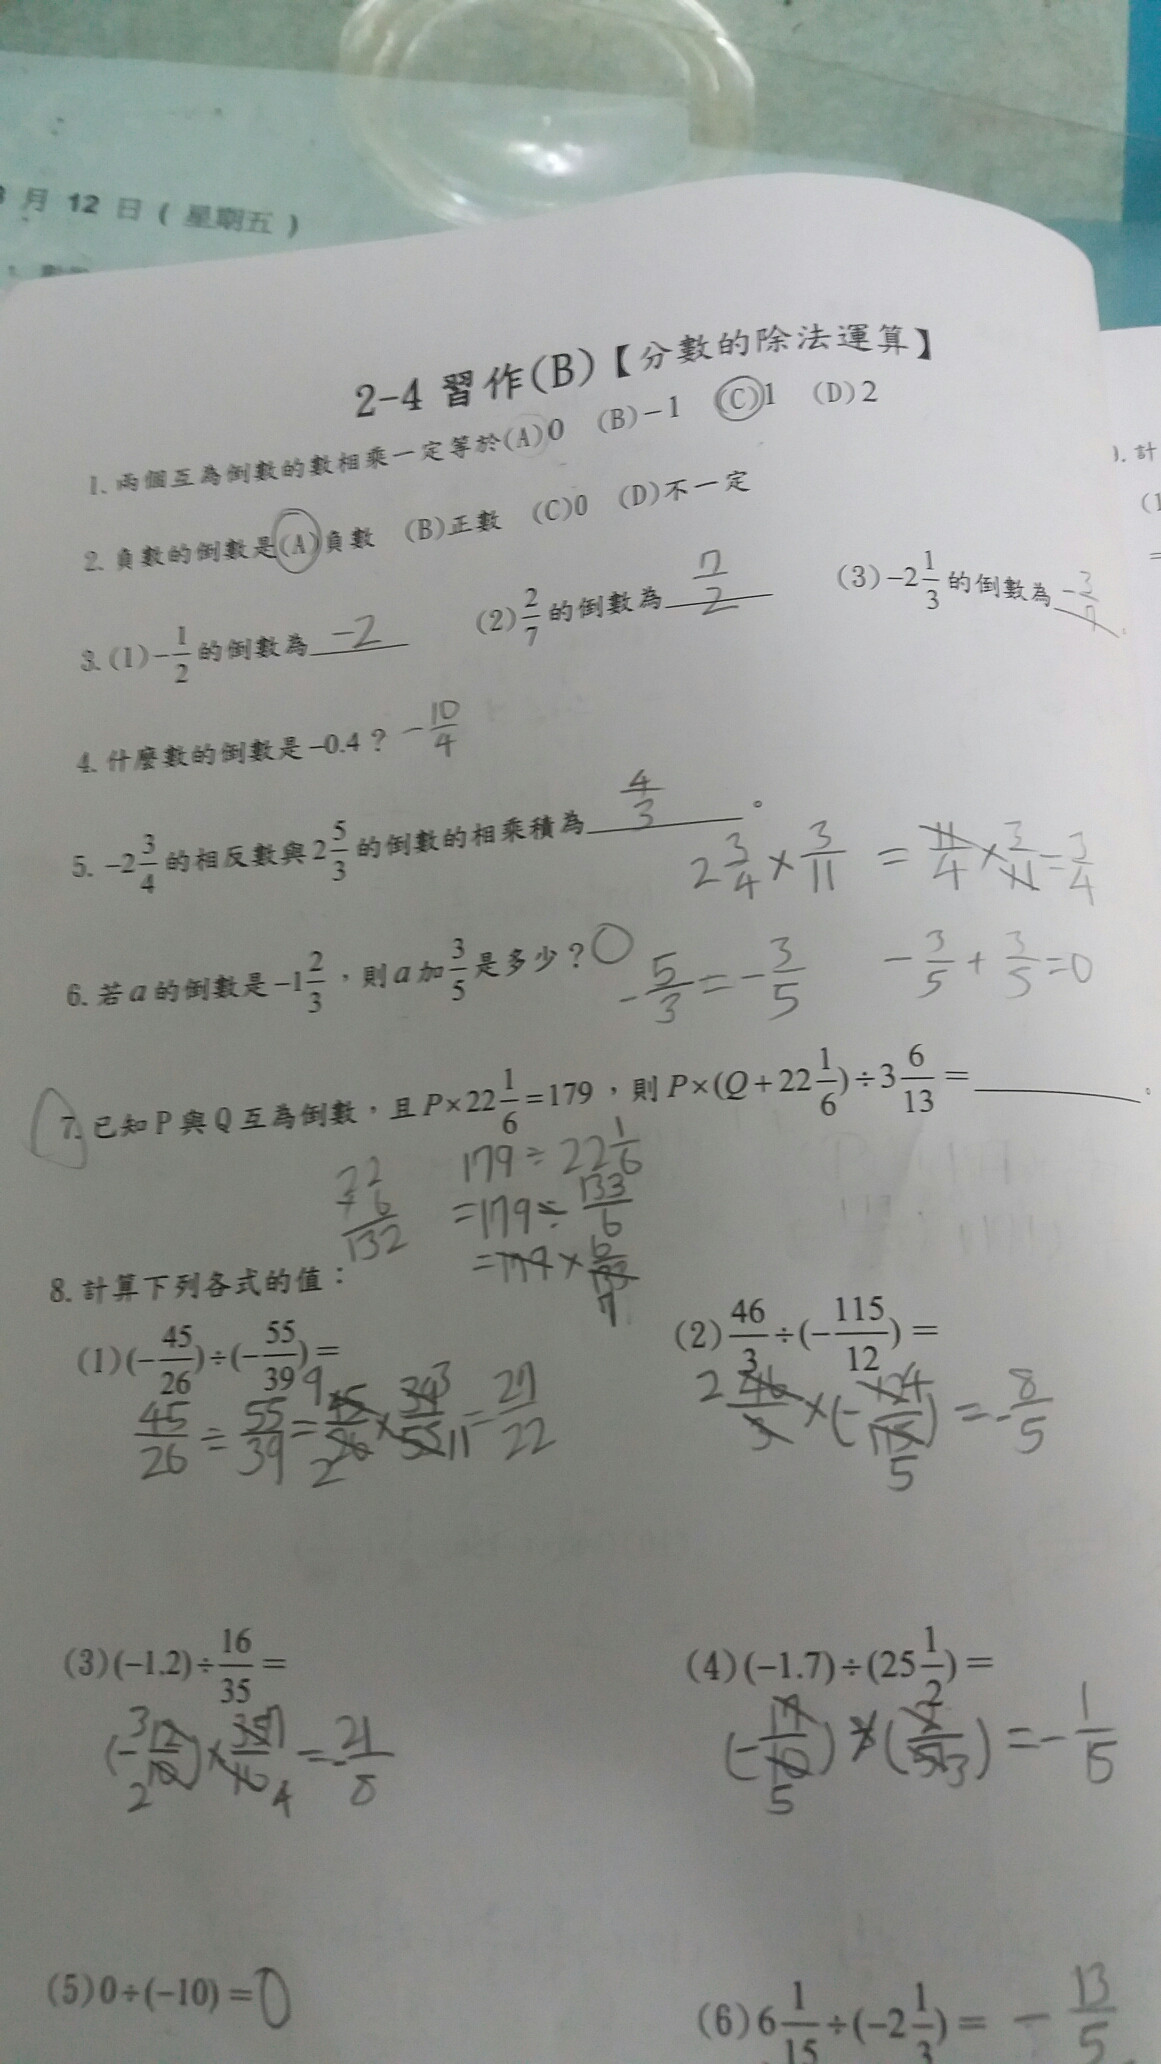 月 12 日 ( 星期五 )
2-4 習作(B)【分數的除法運算】
1. 兩個互為倒數的數相乘一定等於(A)0 (B)-1 (C)1 (D)2
2. 負數的倒數是(A)負數 (B)正數 (C)0 (D)不一定
3. (1)-1/2的倒數為 -2 (2)2/7的倒數為 7/2 (3)-2 1/3的倒數為 -3/7
4. 什麼數的倒數是-0.4? -10/4
5. -2 3/4的相反數與2 5/3的倒數的相乘積為 4/3 。
2 3/4 × 3/11 = 11/4 × 3/11 = 3/4
6. 若a的倒數是-1 2/3,則a加3/5是多少? 0
-5/3 = -3/5 -3/5 + 3/5 = 0
7. 已知P與Q互為倒數,且P×22 1/6=179,則P×(Q+22 1/6)÷3 6/13= 。
22
× 6
132
179 ÷ 22 1/6
= 179 ÷ 133/6
8. 計算下列各式的值:
(1)(-45/26)÷(-55/39)=
45/26 ÷ 55/39 = 9 45/26 2 × 39 3/55 11 = 27/22
(2)46/3÷(-115/12)=
2 46/3 × (-12 4/115 5) = -8/5
(3)(-1.2)÷16/35=
(-3 12/10 2) × 35 7/16 4 = -21/8
(4)(-1.7)÷(25 1/2)=
(-17/10 5) × (2/51 3) = -1/15
(5)0÷(-10)=0
(6)6 1/15÷(-2 1/3)= -13/5